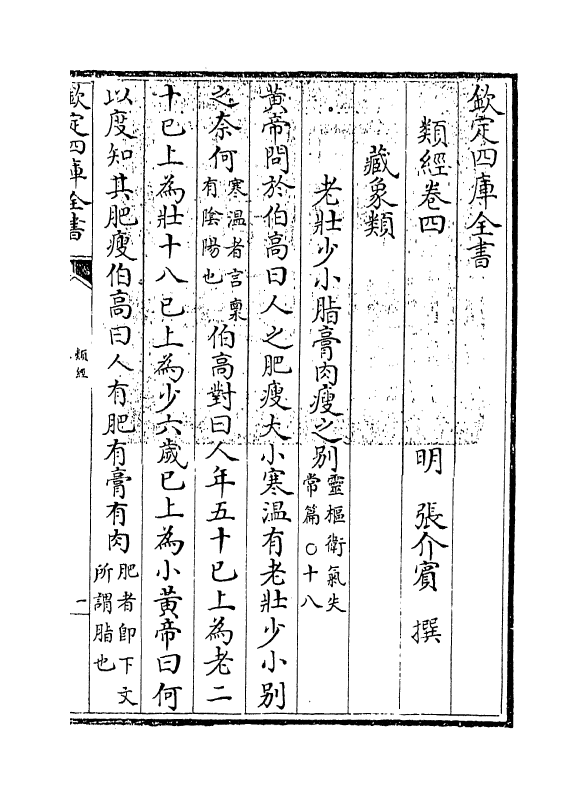 欽定四庫全書
類經卷四
明 張介賓 撰
藏象類
老壯少小脂膏肉瘦之別靈樞衛氣失常篇○十八
黃帝問於伯高曰人之肥瘦大小寒溫有老壯少小別
之奈何寒溫者言稟有陰陽也伯高對曰人年五十已上為老二
十已上為壯十八已上為少六歲已上為小黃帝曰何
以度知其肥瘦伯高曰人有肥有膏有肉肥者即下文所謂脂也
欽定四庫全書
類經
一